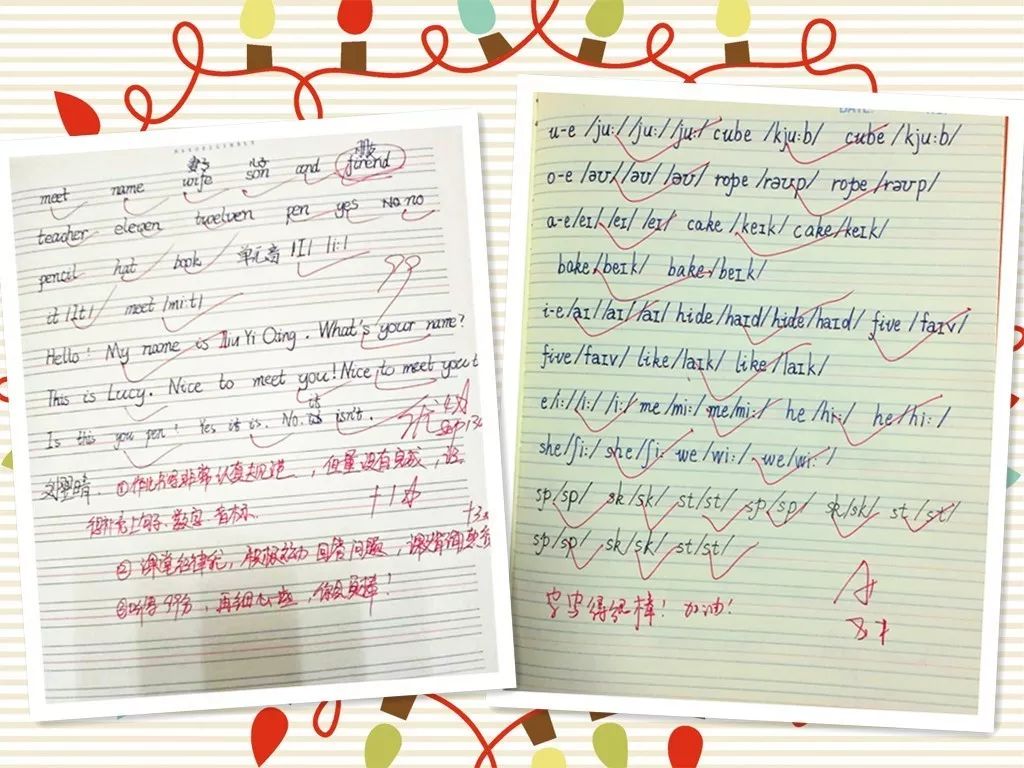 meet name wife son and firend
teacher eleven twelven pen yes No no
pencil hat book 单元音 /I/ /i:/
it /It/ meet /mi:t/
99
Hello! My name is Liu Yi Qing. What's your name?
This is Lucy. Nice to meet you! Nice to meet you t
Is this you pen? Yes it is. No. it isn't.
①作业书写非常认真规范，但量没有完成，
+1分
②课堂纪律好，积极主动回答问题，
③听得99分，再细心些，你会更棒！
u-e /ju:/ /ju:/ /ju:/ cube /kju:b/ cube /kju:b/
o-e /əʊ/ /əʊ/ /əʊ/ rope /rəʊp/ rope /rəʊp/
a-e /eI/ /eI/ /eI/ cake /keIk/ cake /keIk/
bake /beIk/ bake /beIk/
i-e /aI/ /aI/ /aI/ hide /haId/ hide /haId/ five /faIv/
five /faIv/ like /laIk/ like /laIk/
e /i:/ /i:/ /i:/ me /mi:/ me /mi:/ he /hi:/ he /hi:/
she /ʃi:/ she /ʃi:/ we /wi:/ we /wi:/
sp /sp/ sk /sk/ st /st/ sp /sp/ sk /sk/ st /st/
sp /sp/ sk /sk/ st /st/
字写得很棒！加油！
A